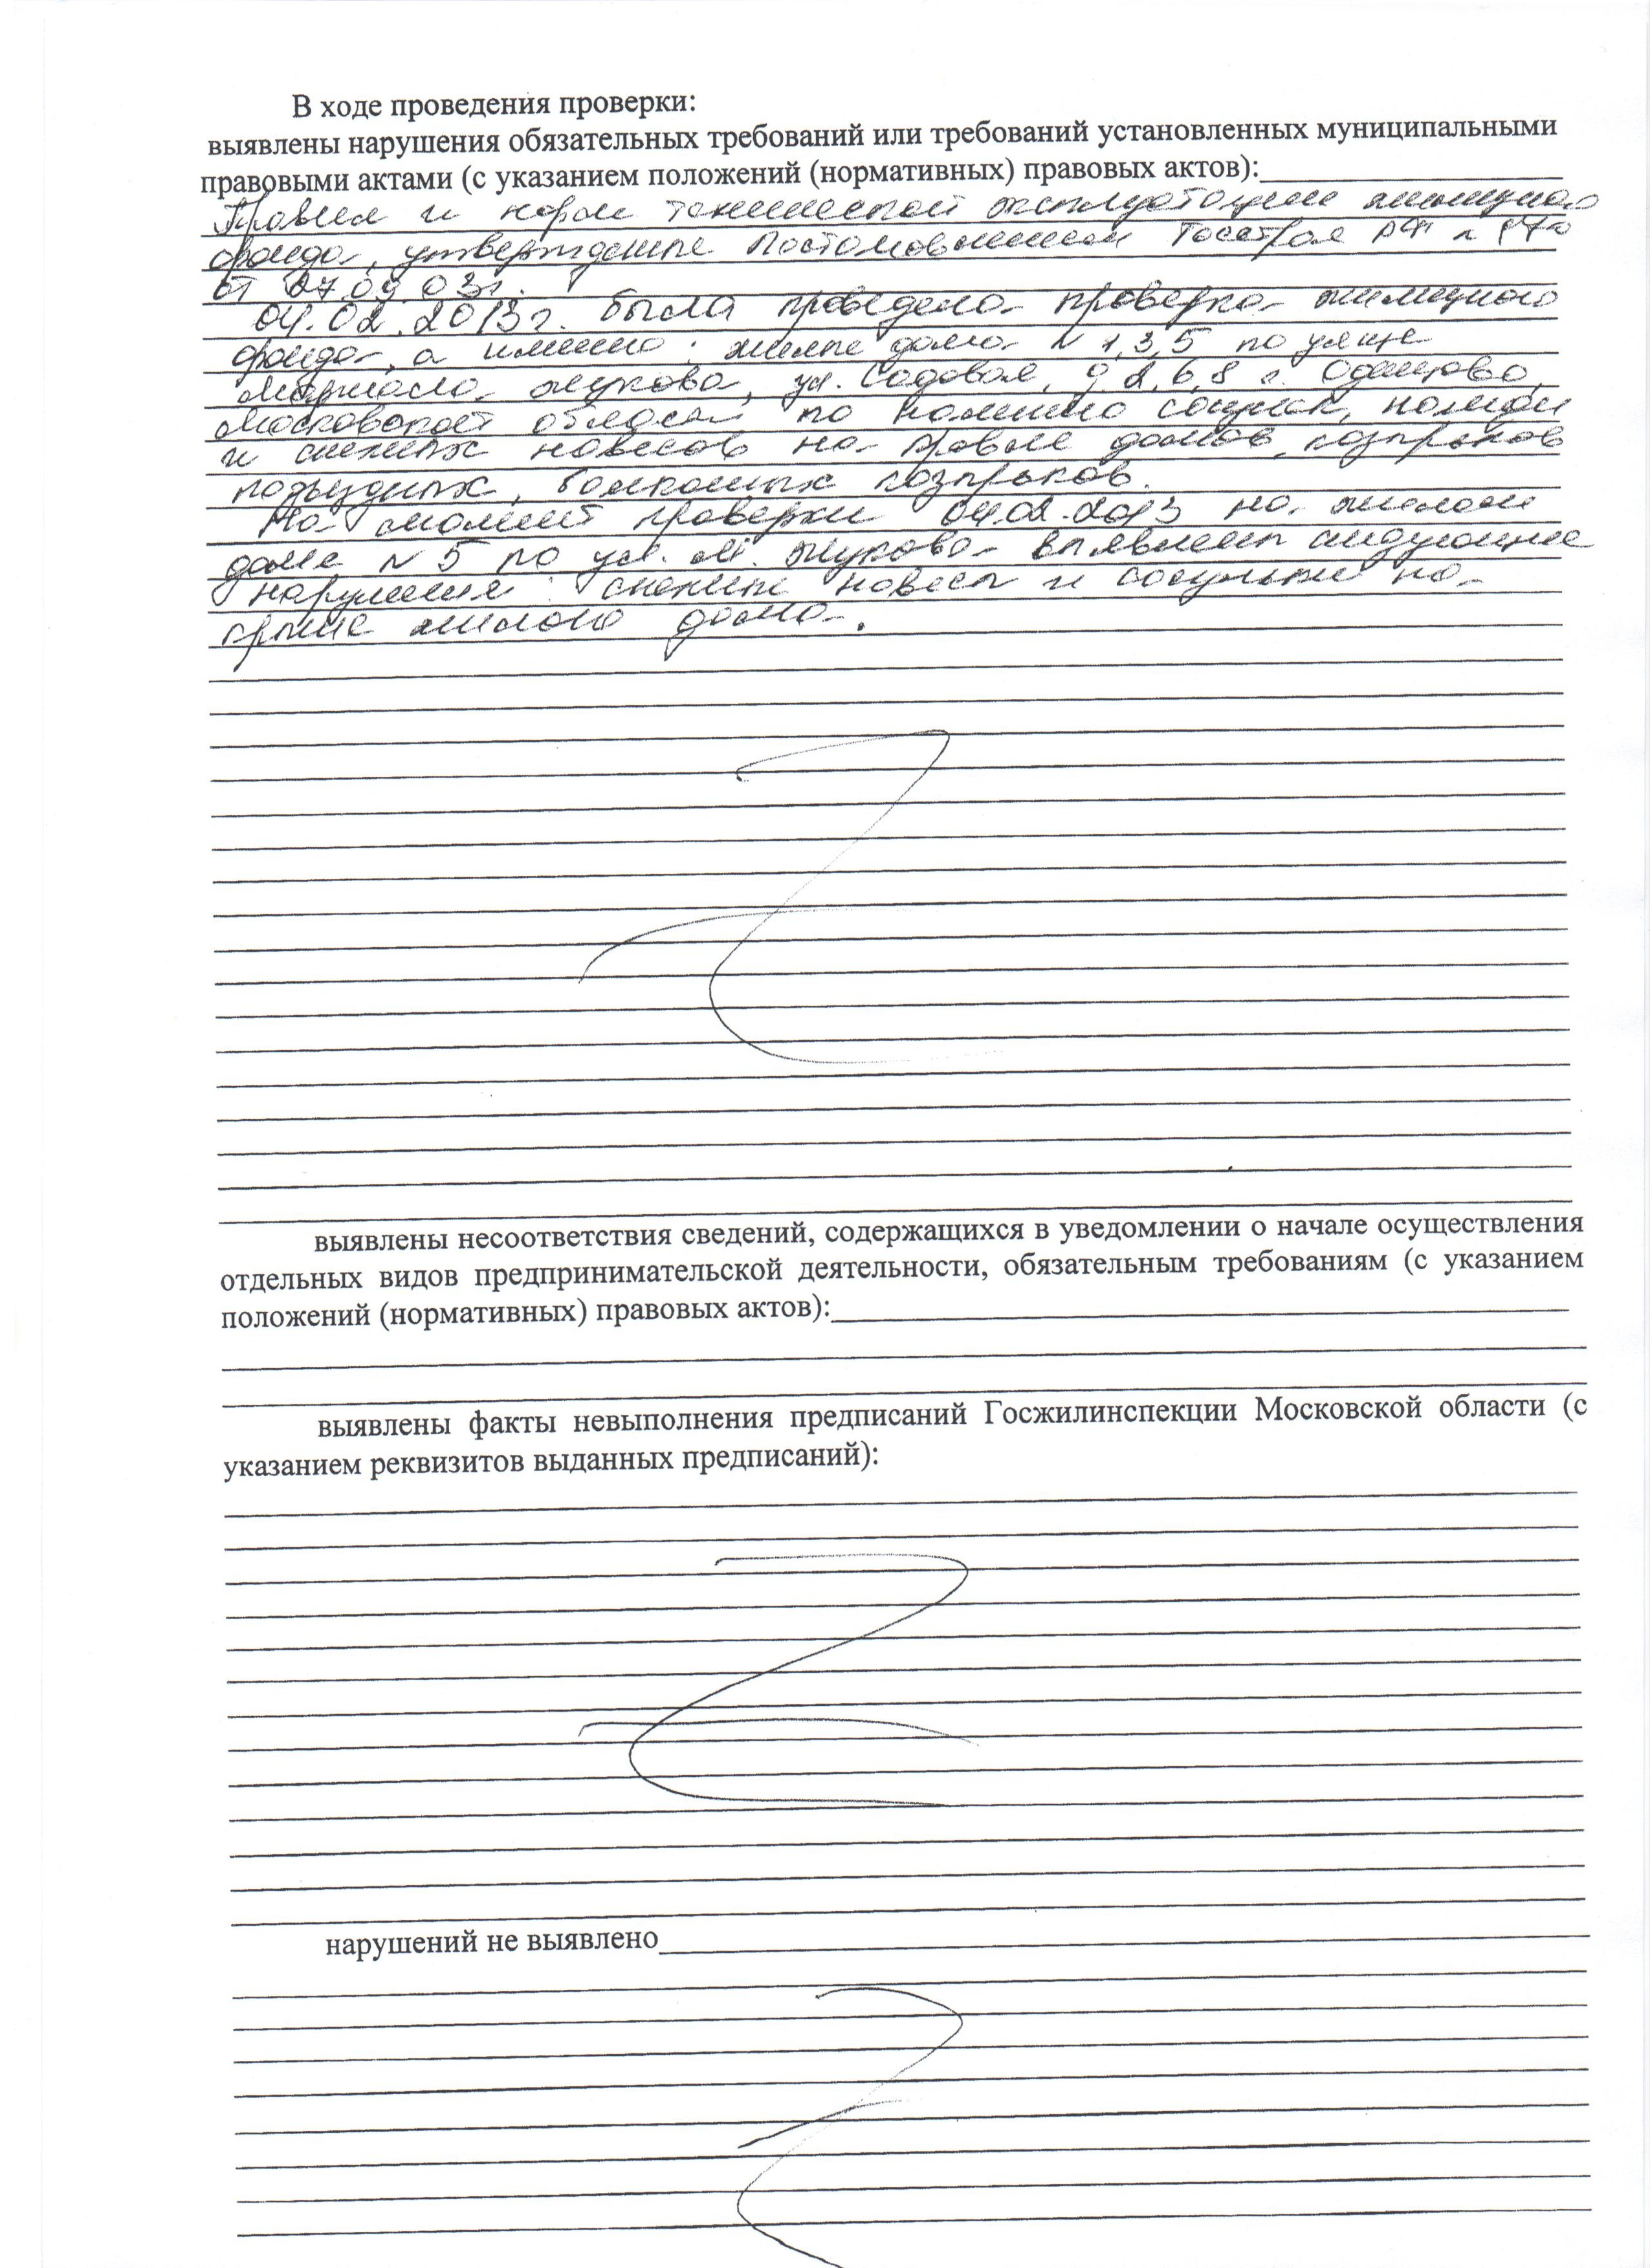 В ходе проведения проверки:
выявлены нарушения обязательных требований или требований установленных муниципальными
правовыми актами (с указанием положений (нормативных) правовых актов):
Правил и норм технической эксплуатации жилищного
фонда, утвержденные Постановлением Госстроя РФ N 170
от 27.09.03г.
04.02.2013г. была проведена проверка жилищного
фонда, а именно: жилые дома N 1,3,5 по улице
Маршала Жукова, ул. Садовая, 2,6,8 г. Одинцово,
Московской области по наличию сосулек, наледи
и снежных навесов на кровле домов, козырьков
подъездных, балконных козырьков.
На момент проверки 04.02.2013 на жилом
доме N 5 по ул. М. Жукова выявлены следующие
нарушения: снежные навесы и сосульки на
крыше жилого дома.
выявлены несоответствия сведений, содержащихся в уведомлении о начале осуществления
отдельных видов предпринимательской деятельности, обязательным требованиям (с указанием
положений (нормативных) правовых актов):
выявлены факты невыполнения предписаний Госжилинспекции Московской области (с
указанием реквизитов выданных предписаний):
нарушений не выявлено